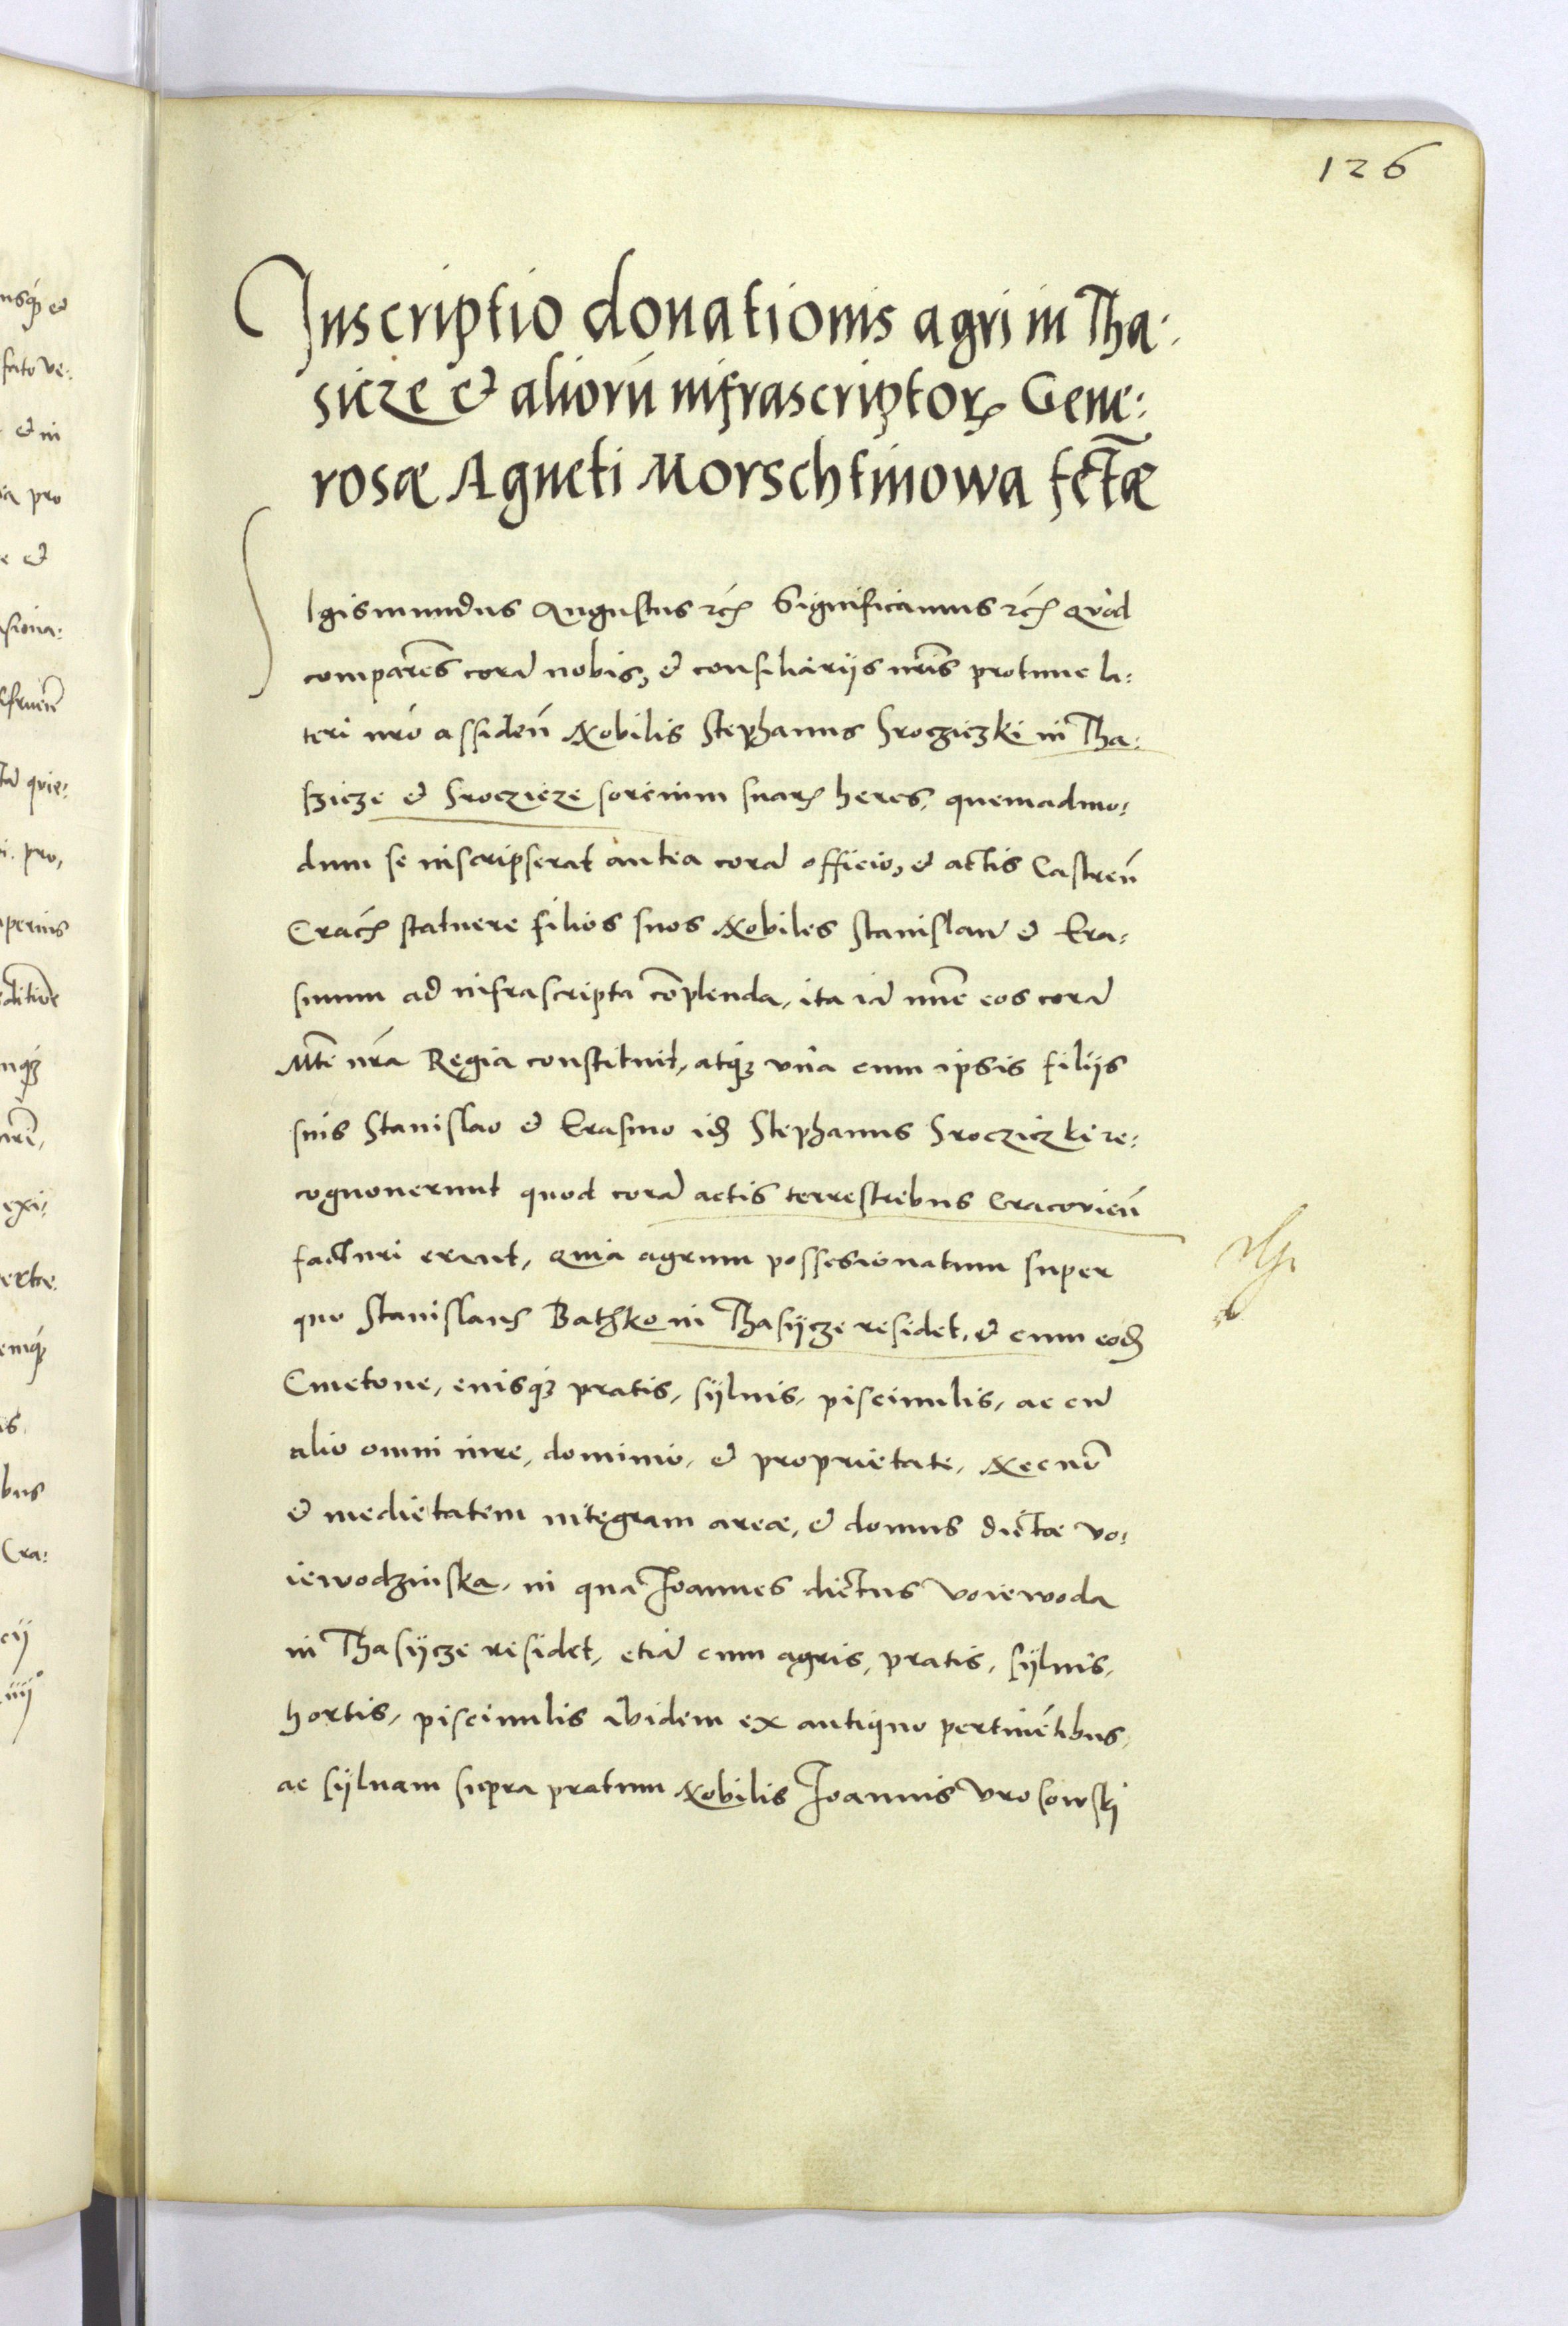 126
Inscriptio donationis agri in Tha:
sicze et aliorū infrascriptoꝝ Gene:
rosæ Agneti Morschtinowa fctæ
Sigismundus Augustus rcꝭ Significamus rcꝭ Quòd
comparēs corā nobis, et consiliariis nrīs protunc la:
teri nrō assideñ Nobilis Stephanus Sroczÿczki in Tha:
szicze et Sroczicze sortium suarꝭ heres, quemadmo:
dum se inscripserat antea corā officio, et actis Castreñ
Cracꝭ statuere filios suos Nobiles Stanislaū et Era:
smum ad infrascripta cōplenda, ita iā nūc eos corā
Mte nrā Regia constituit, atqꝫ unà cum ipsis filijs
suis Stanislao et Erasmo idē Stephanus Sroczÿczki re:
cognouerunt quod corā actis terrestribus Cracouieñ
facturi erunt, Quia agrum possesionatum super
quo Stanislaus Bathko in Thasÿcze residet, et cum eodē
Cmetone, eiusqꝫ pratis, sÿluis, piscinulis, ac cū
alio omni iure, dominio, et proprietate, Necnō
et medietatem integram areæ, et domus dictæ vo:
iewodzinska, in qua Joannes dictus voiewoda
in Thasÿcze residet, etiā cum agris, pratis, sÿluis,
hortis, piscinulis ibidem ex antiquo pertinētibus,
ac sÿluam supra pratum Nobilis Joannis Vrosowskj